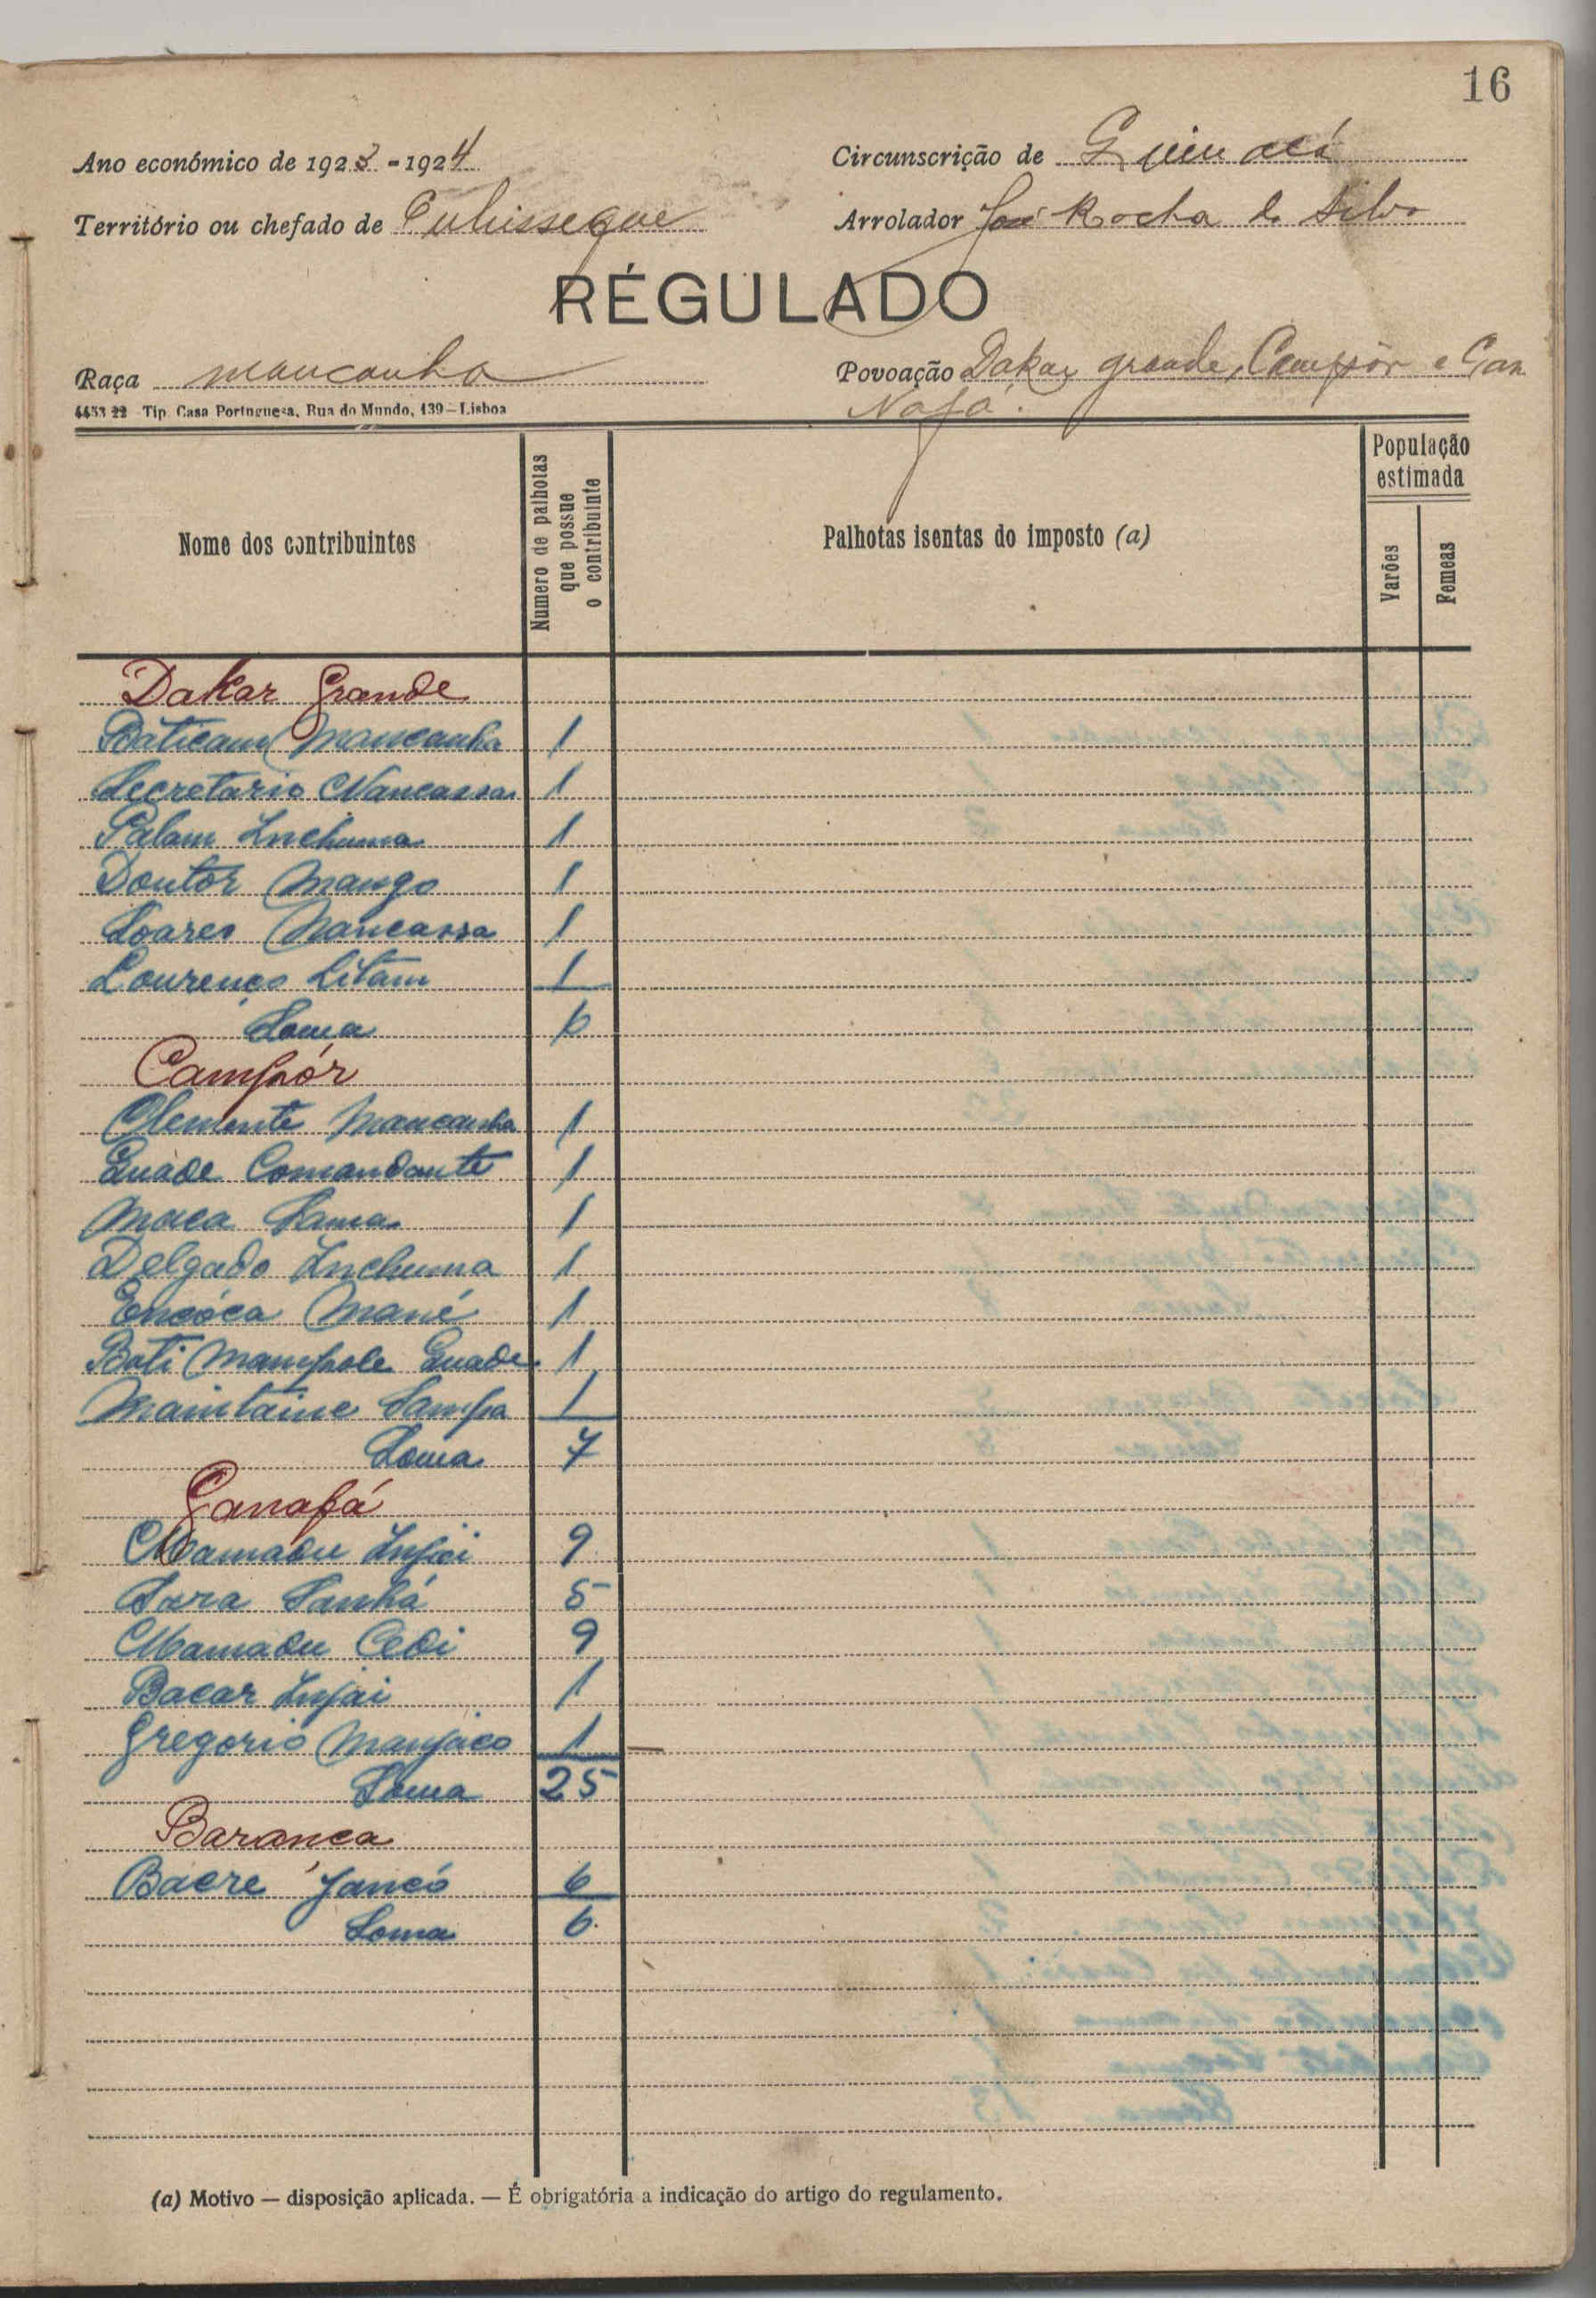 16
Ano económico de 1923-1924
Circunscrição de
Território ou chefado de
Arrolador José Rocha da Silva
RÉGULADO
Raça mancanha
Povoação Dakar grande, Campór e Gan
Nafá.
4453 22 Tip. Casa Portuguesa, Rua do Mundo, 139—Lisboa
Nome dos contribuintes
Numero de palhotas
que possue
o contribuinte
Palhotas isentas do imposto (a)
População
estimada
Varões
Femeas
Dakar Grande
Baticam Mancanha 1
Secretario Nancassa 1
Palam Inchuma 1
Doutor Mango 1
Soares Nancassa 1
Lourenço Litam 1
Soma 6
Campór
Clemente Mancanha 1
Guade Comandante 1
Maca Sama 1
Delgado Inchuma 1
Encóca Mané 1
Bati Mampole Guade 1
Maintaine Sampa 1
Soma 7
Ganafá
Mamadu Injai 9
Sara Sanhá 5
Mamadu Cedi 9
Bacar Injai 1
Gregorio Manjaco 1
Soma 25
Baranca
Bacre Jancó 6
Soma 6.
(a) Motivo — disposição aplicada. — É obrigatória a indicação do artigo do regulamento.